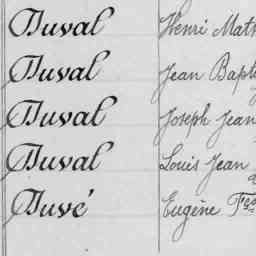 Duval Henri
Duval Jean
Duval Joseph Jean
Duval Louis Jean
Duvé Eugène